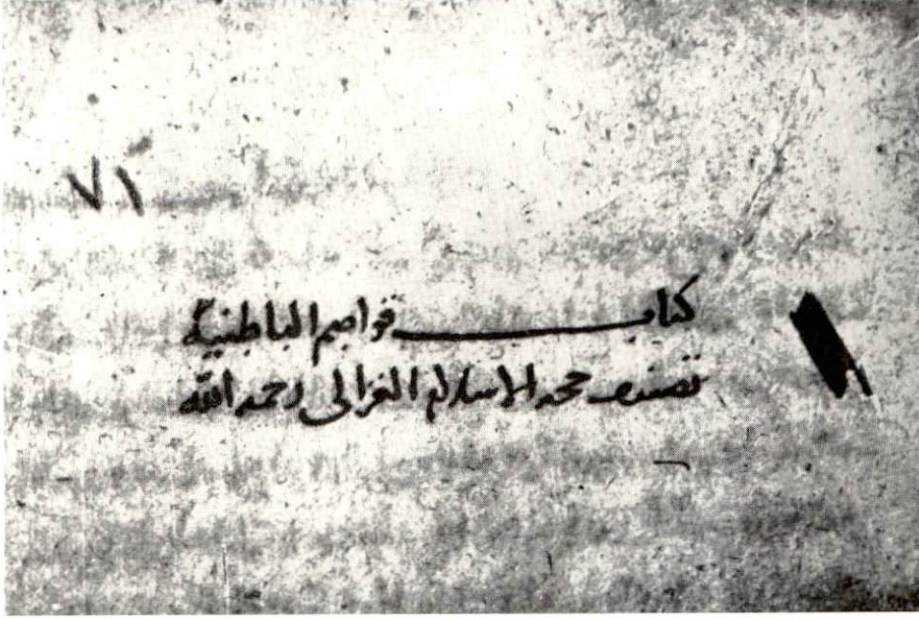 ٧١
كتاب قواصم الباطنية
تصنيف حجه الاسلام الغزالى رحمه الله